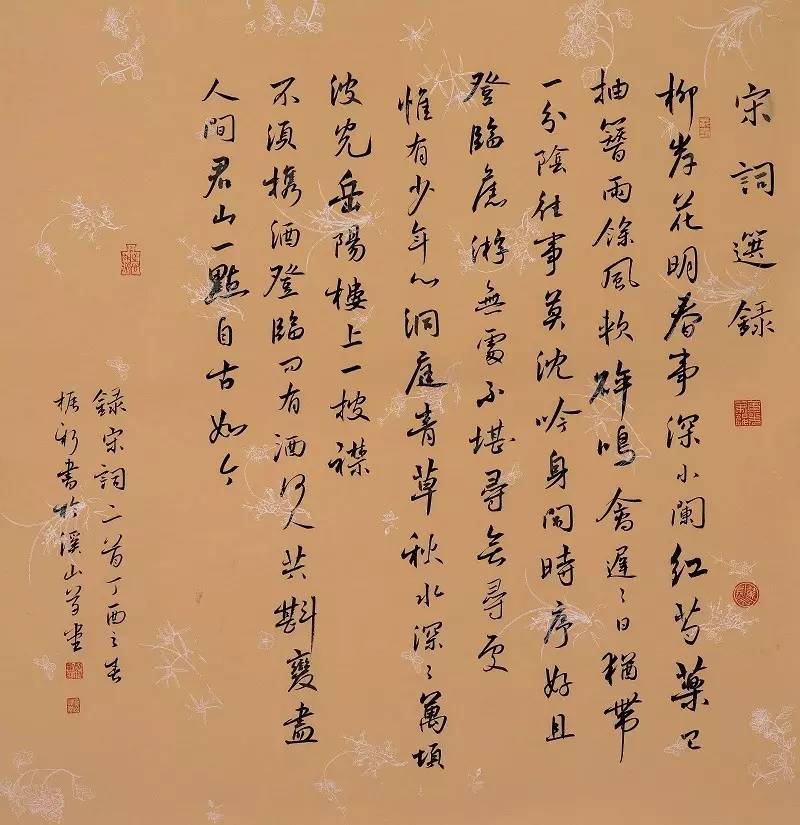 宋詞選録
柳岸花明春事深小闌紅芍藥已
抽簪雨餘風軟碎鳴禽遲〻日猶帶
一分陰往事莫沈吟身閒時序好且
登臨舊游無處不堪尋無尋處
惟有少年心洞庭青草秋水深〻萬頃
波光岳陽樓上一披襟
不須携酒登臨問有酒何人共斟變盡
人間君山一點自古如今
録宋詞二首丁酉之春
振新書於溪山草堂